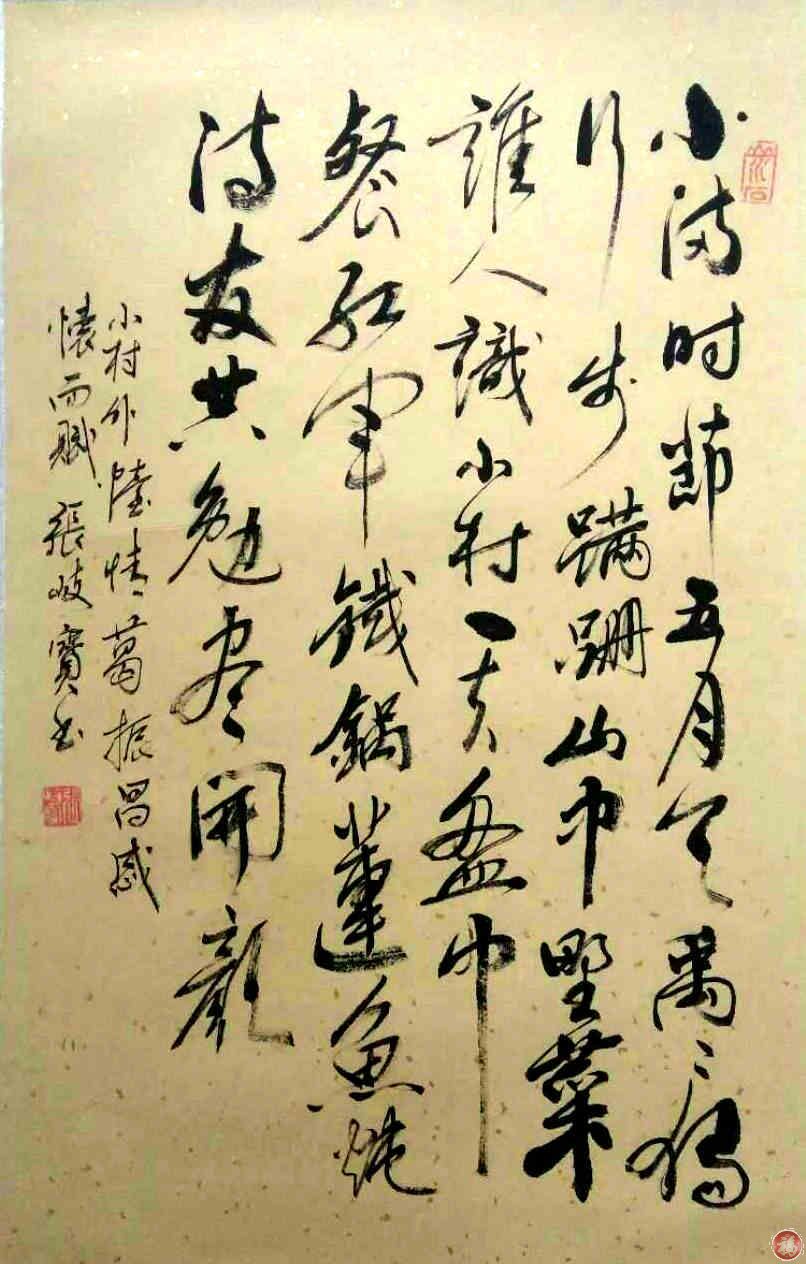 小满时節五月天禹〻独
行步蹒跚山中野菜
誰人識小村一夫盘中
餐红军鐵鍋蓮魚炖
诗友共勉尽開颜
小村外陸情葛振昌感
懷而賦 張岐寶书